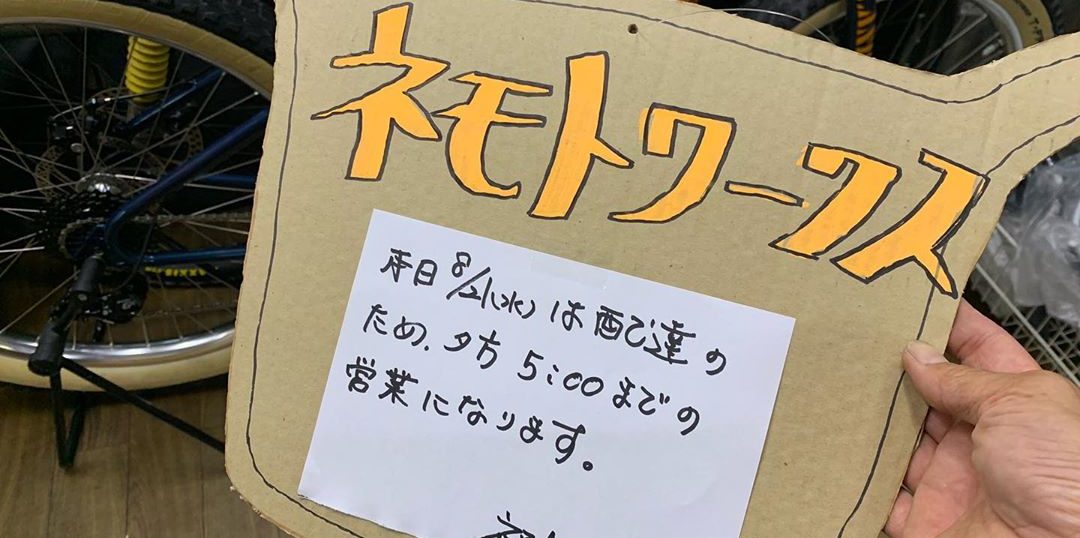 ネモトワークス
本日 8/21(水) は配達の
ため、夕方 5:00までの
営業になります。